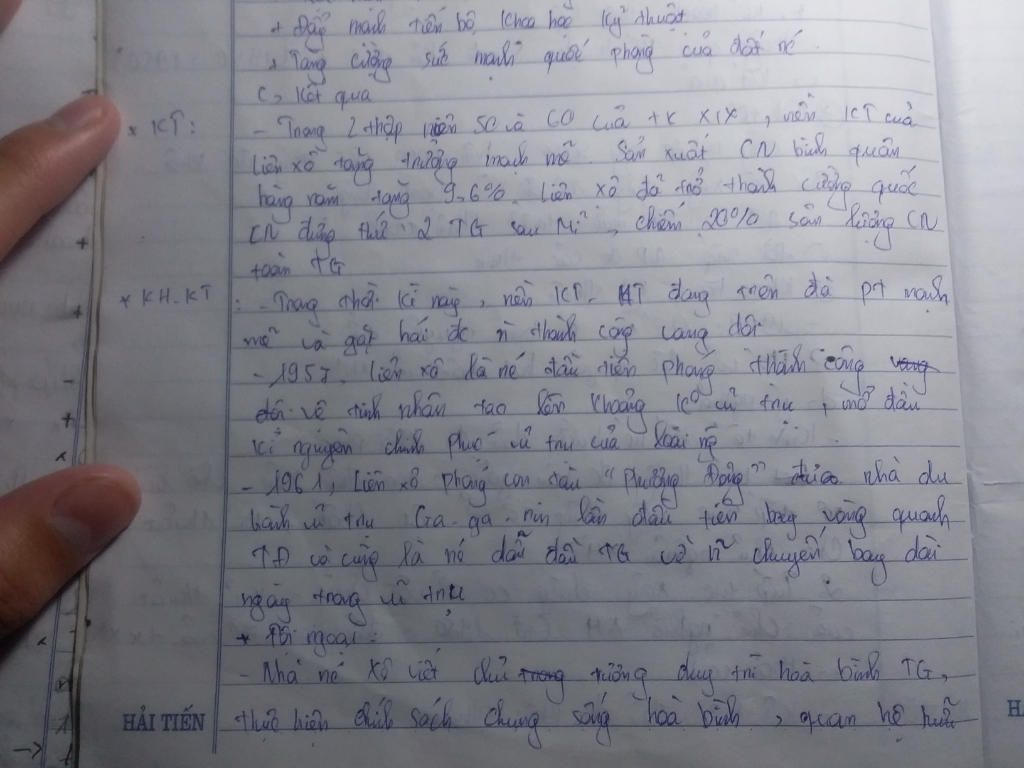 + Đẩy mạnh tiến bộ khoa học kỹ thuật
+ Tăng cường sức mạnh quốc phòng của đất nc
c, Kết quả
* KT:
- Trong 2 thập niên 50 và 60 của tk XIX, nền KT của
Liên xô tăng trưởng mạnh mẽ. Sản xuất CN bình quân
hàng năm tăng 9,6%. Liên xô đã trở thành cường quốc
CN đứng thứ 2 TG sau Mĩ, chiếm 20% sản lượng CN
toàn TG
* KH-KT
: - Trong thời kì này, nền KT-KT đang trên đà PT mạnh
mẽ và gặt hái đc n thành công vang dội
- 1957. Liên xô là nc đầu tiên phóng thành công vang
dội vệ tinh nhân tạo lên khoảng ko vũ trụ, mở đầu
kỉ nguyên chinh phục vũ trụ của loài ng
- 1961, Liên xô phóng con tàu "Phương Đông" đưa nhà du
hành vũ trụ Ga-ga-rin lần đầu tiên bay vòng quanh
TĐ và cũng là nc dẫn đầu TG về n~ chuyến bay dài
ngày trong vũ trụ
* Đối ngoại:
- Nhà nc Xô viết chủ trong trương duy trì hoà bình TG,
thực hiện chính sách chung sống hoà bình, quan hệ hữu
HẢI TIẾN